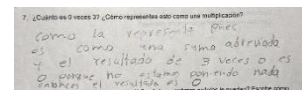 7. ¿Cuánto es 0 veces 3? ¿Cómo representas esto como una multiplicación?
como la representa pues
es como una suma abreviada
y el resultado de 3 veces 0 es
0 porque no estamos poniendo nada
entonces el resultado es 0